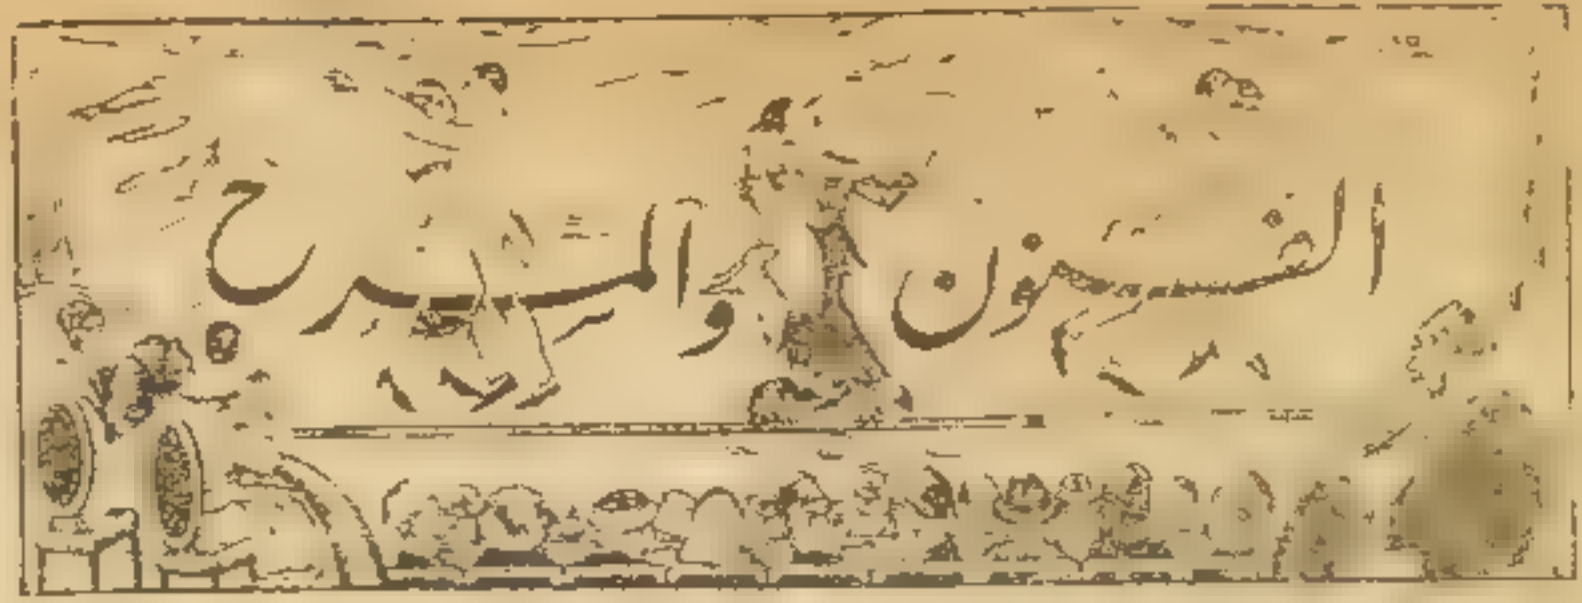 الفنون والمسرح